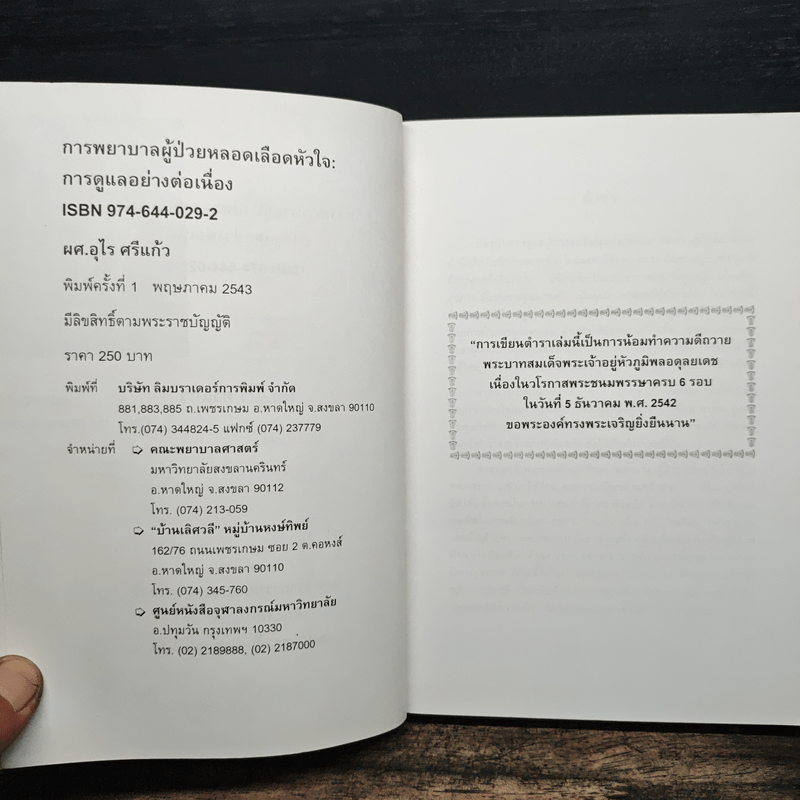 การพยาบาลผู้ป่วยหลอดเลือดหัวใจ:
การดูแลอย่างต่อเนื่อง
ISBN 974-644-029-2
ผศ.อุไร ศรีแก้ว
พิมพ์ครั้งที่ 1 พฤษภาคม 2543
มีลิขสิทธิ์ตามพระราชบัญญัติ
ราคา 250 บาท
พิมพ์ที่ บริษัท ลิมบราเดอร์การพิมพ์ จำกัด
881,883,885 ถ.เพชรเกษม อ.หาดใหญ่ จ.สงขลา 90110
โทร.(074) 344824-5 แฟกซ์ (074) 237779
จำหน่ายที่ ➪ คณะพยาบาลศาสตร์
มหาวิทยาลัยสงขลานครินทร์
อ.หาดใหญ่ จ.สงขลา 90112
โทร. (074) 213-059
➪ “บ้านเลิศวลี” หมู่บ้านหงษ์ทิพย์
162/76 ถนนเพชรเกษม ซอย 2 ต.คอหงส์
อ.หาดใหญ่ จ.สงขลา 90110
โทร. (074) 345-760
➪ ศูนย์หนังสือจุฬาลงกรณ์มหาวิทยาลัย
อ.ปทุมวัน กรุงเทพฯ 10330
โทร. (02) 2189888, (02) 2187000
“การเขียนตำราเล่มนี้เป็นการน้อมทำความดีถวาย
พระบาทสมเด็จพระเจ้าอยู่หัวภูมิพลอดุลยเดช
เนื่องในวโรกาสพระชนมพรรษาครบ 6 รอบ
ในวันที่ 5 ธันวาคม พ.ศ. 2542
ขอพระองค์ทรงพระเจริญยิ่งยืนนาน”